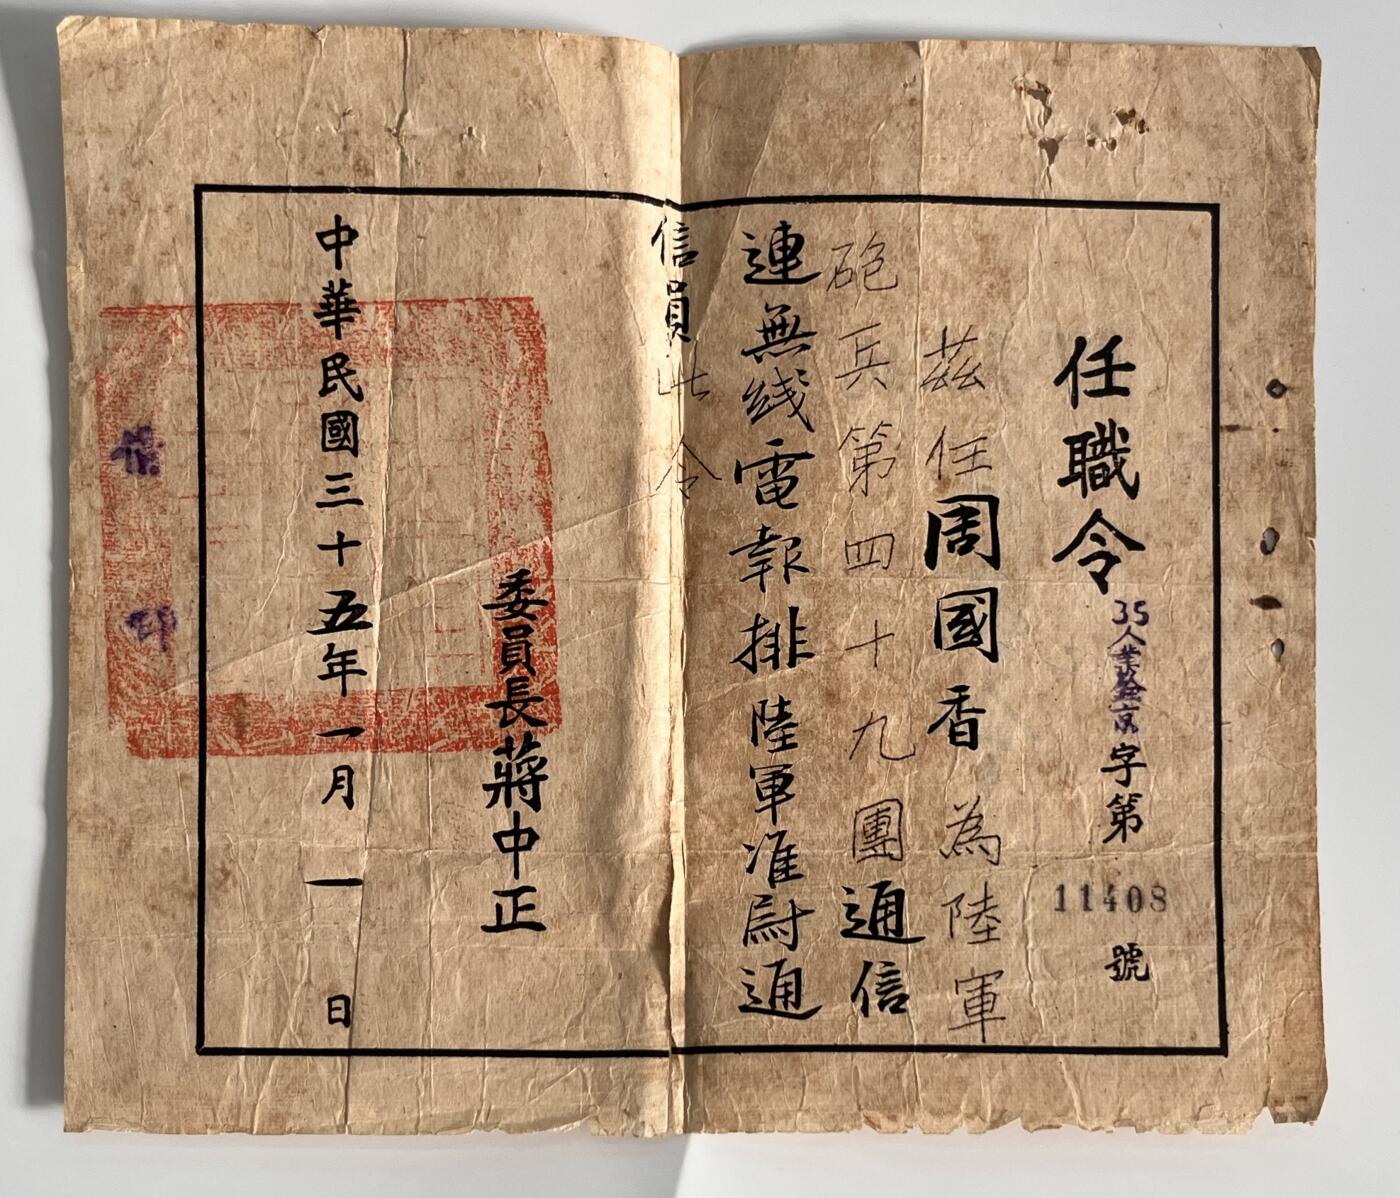 任職令
35人業黔京字第11408號
茲任周國香為陸軍
砲兵第四十九團通信
連無线電報排陸軍准尉通
信員此令
委員長蔣中正
中華民國三十五年一月一日
印